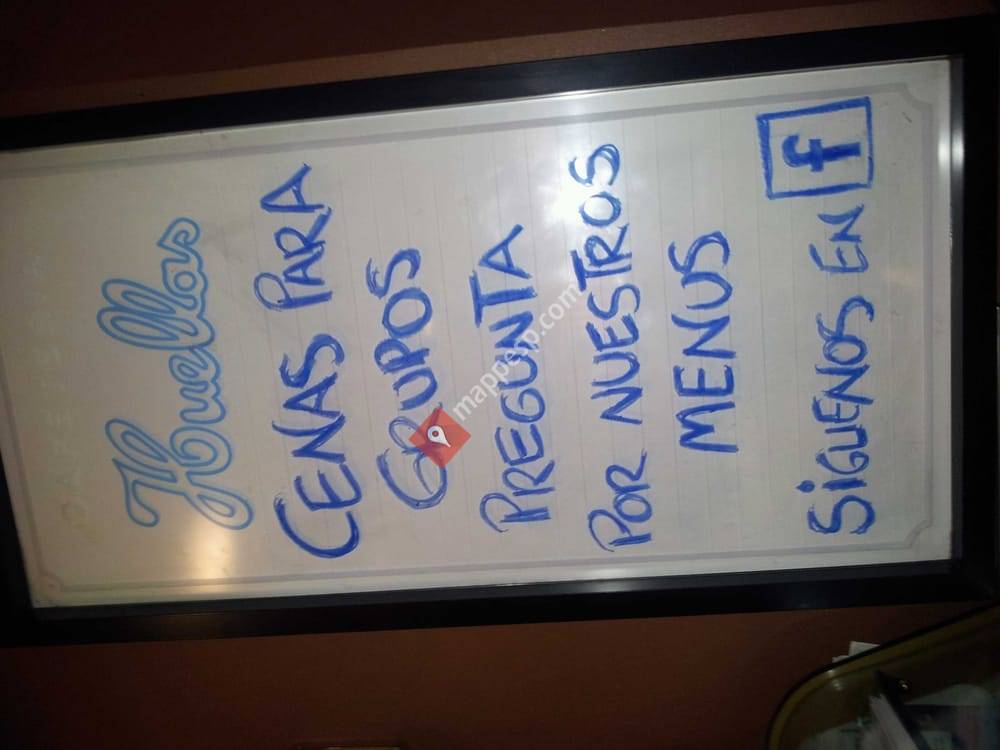 Huellas
CENAS PARA
GRUPOS
PREGUNTA
POR NUESTROS
MENUS
SiGUENOS EN f
mappesp.com